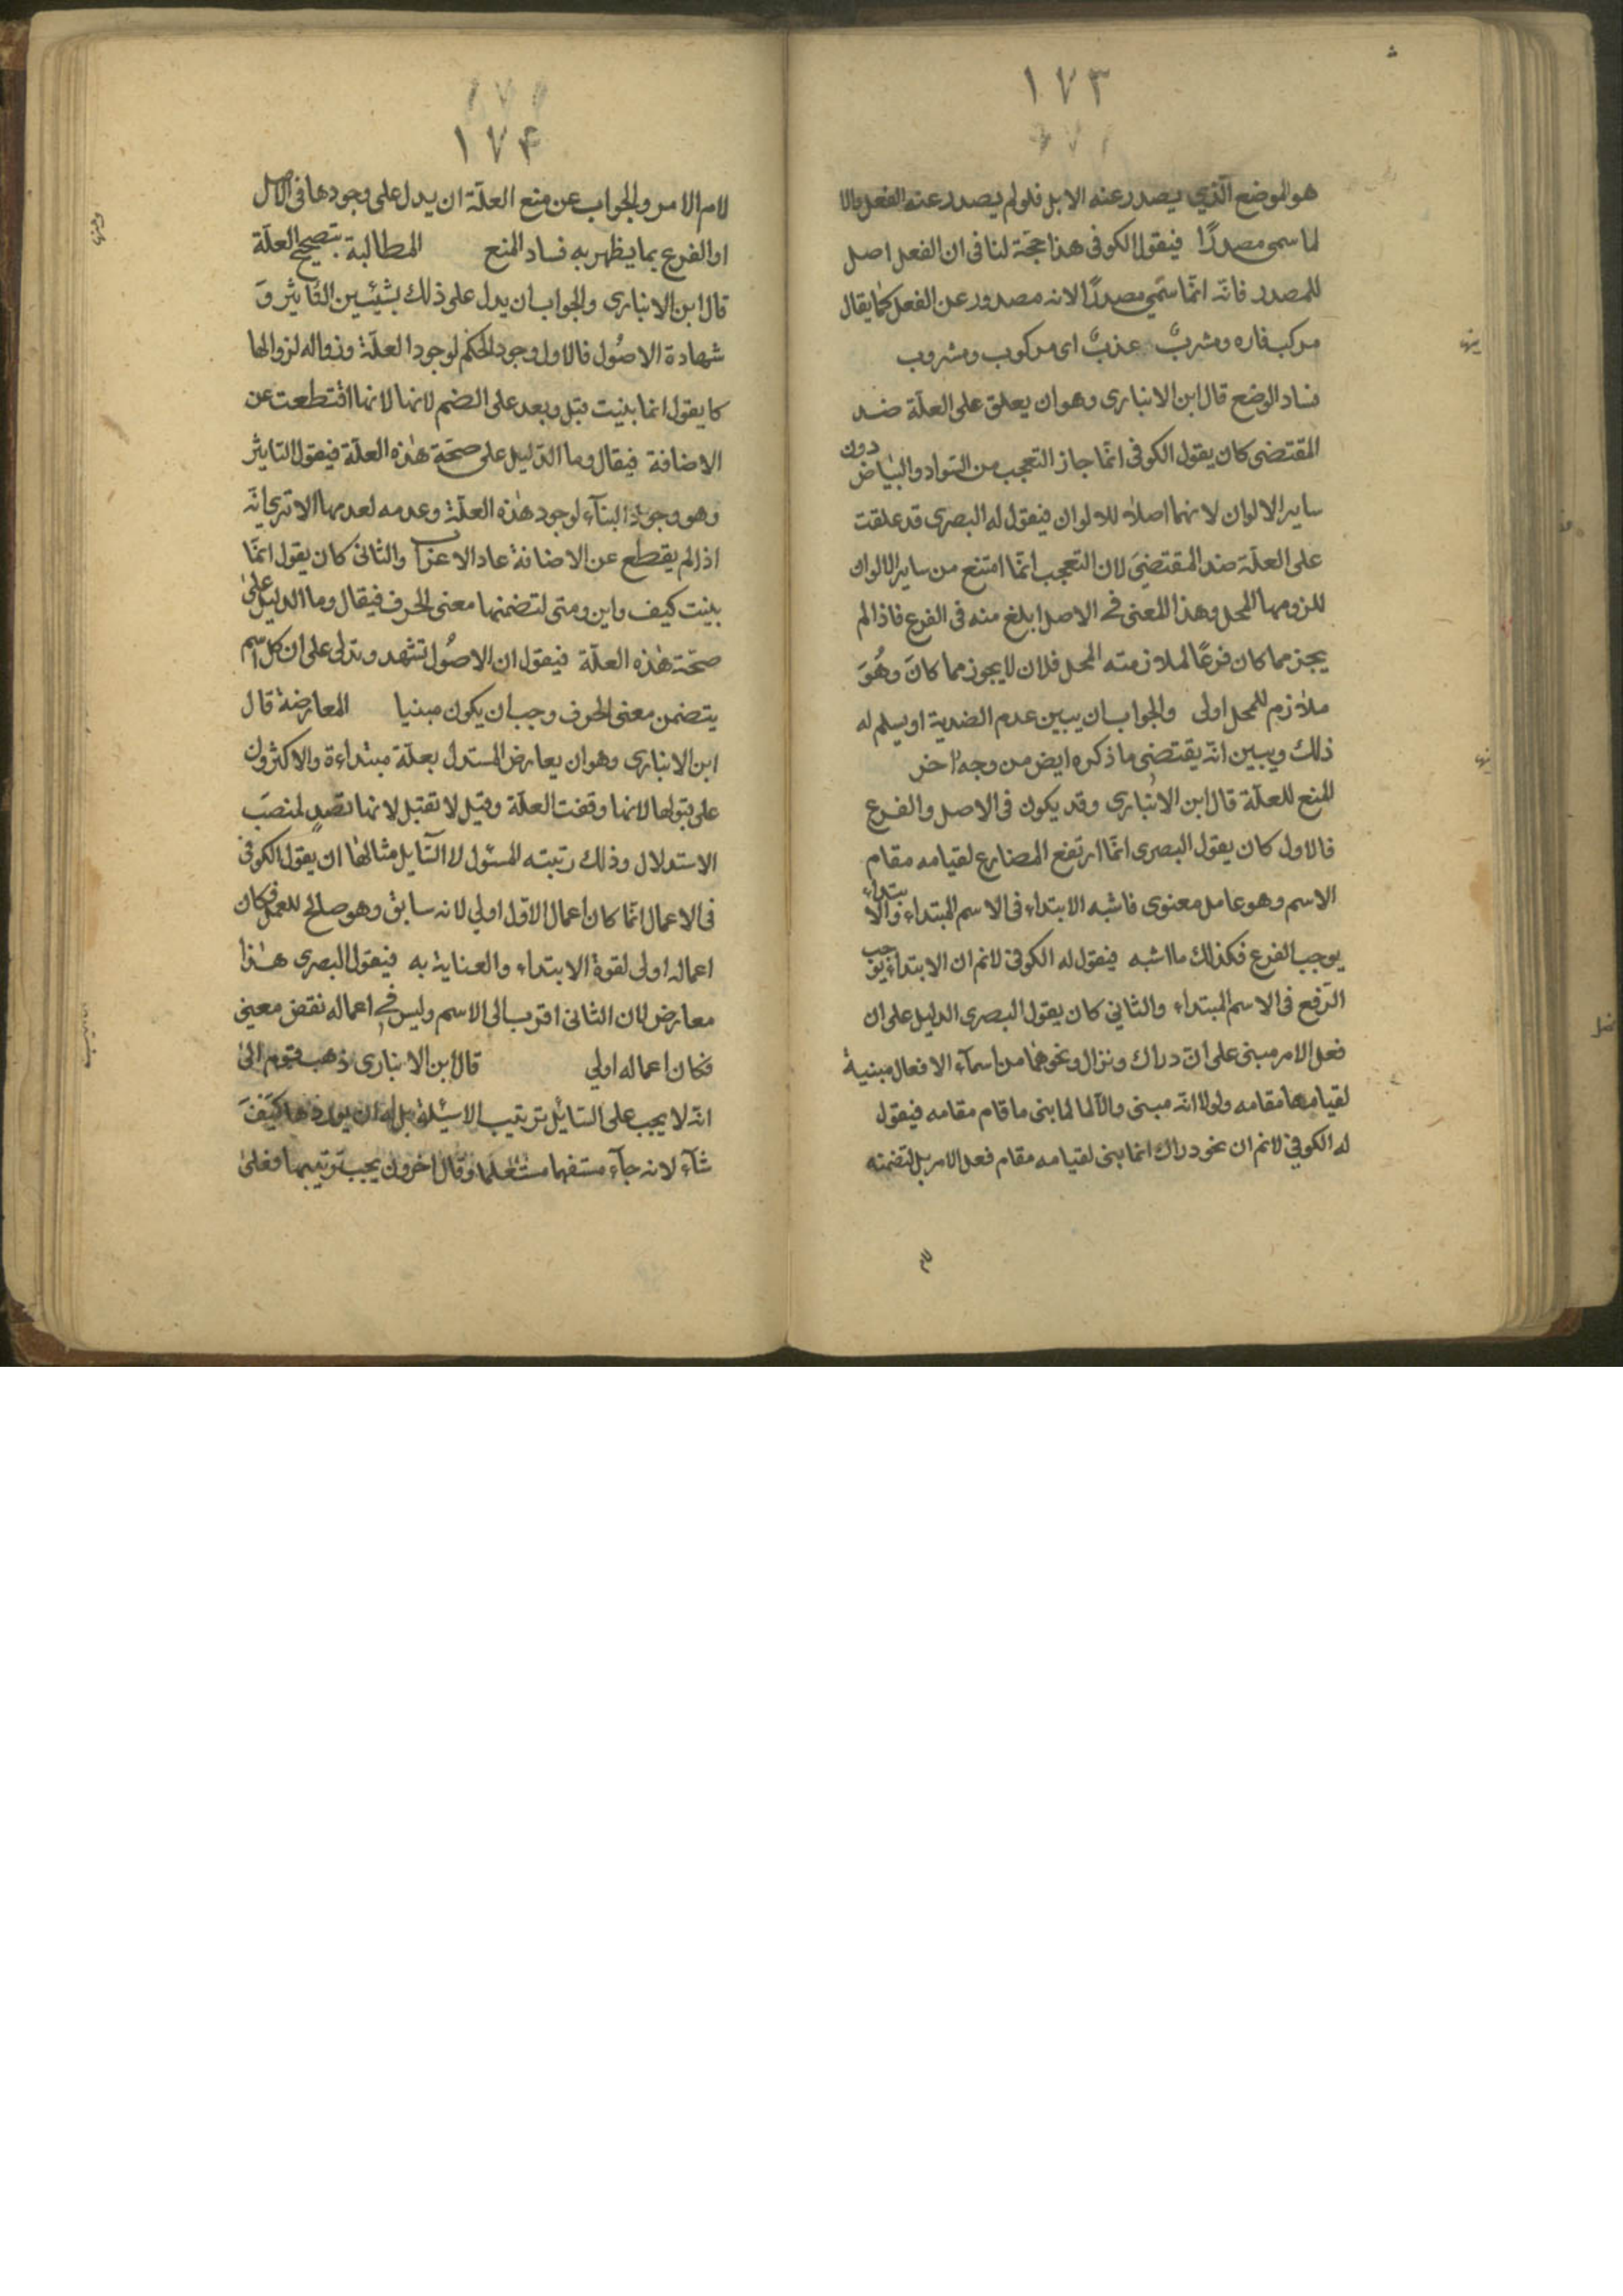 ١٧٣
هو الموضع الّذي يصدر عنه الابل فلو لم يصدر عنه الفعل والا
لما سمى مصدرًا فيقول الكوفى هذا حجّة لنا فى ان الفعل اصل
للمصدر فانّه انمّا سمّى مصدرًا لانه مصدور عن الفعل كمٰا يقال
مركب فاره ومشربٌ عذبٌ اى مركوب ومشروب
فساد الوضع قال ابن الانبارى وهو ان يعلق على العلّة ضد
المقتضى كان يقول الكوفى انمّا جاز التعجب من السّواد والبيٰاض دون
ساير الالوان لانهما اصلاه للالوان فيقول له البصرى قد علقت
على العلّة ضد المقتضىَ لان التعجب انمّا امتنع من ساير الالوان
للزومها المحل وهذا المعنى فى الاصل ابلغ منه فى الفرع فاذا لم
يجز مما كان فرعًا لملازمته المحل فلان لا يجوز مما كانَ وهُوَ
ملاٰزم للمحل اولى والجواب ان يبين عدم الضدية او يسلم له
ذلك ويبين انّه يقتضى ما ذكره ايض من وجه اٰخر
المنع للعلّة قال ابن الانبٰارى وقد يكون فى الاصل والفرع
فالاول كان يقول البصرى انمّا ارتفع المضارع لقيامه مقام
الاسم وهو عامل معنوى فاشبه الابتداء فى الاسم المبتداء والابتداء
يوجب الفرع فكذلك ما اشبه فيقول له الكوفى لانم ان الابتداء يوجب
الرّفع فى الاسم المبتداء والثانى كان يقول البصرى الدليل على ان
فعل الامر مبنى على انّ دراك ونزال ونحوهمٰا من اسمآء الافعال مبنية
لقيامها مقامه ولولا انّه مبنى والاّ لما لما بنى ما قام مقامه فيقول
له الكوفي لانم ان نحو دراك انما بنى لقيامه مقام فعل الامر بل لتضمنه
١٧۴
لام الامر والجواب عن منع العلّة ان يدل على وجودها فى الاصل
او الفرع بما يظهر به فساد المنع المطالبة بتصحيح العلّة
قال ابن الانبارى والجواب ان يدل على ذلك بشيئين التّاثير وَ
شهادة الاصُول فالاول وجود الحكم لوجود العلّة وزواله لزوالها
كا يقول انما بنيت قبل وبعد على الضم لانها لانها اقتطعت عن
الاضافة فيقال وما الدّليل على صحّة هٰذه العلّة فيقول التاثير
وهو وجود البنآء لوجود هٰذه العلّة وعدمه لعدمها الا ترى انّه
اذا لم يقطع عن الاضافة عاد الاعراب والثانى كان يقول انمّا
بنيت كيف واين ومتى لتضمنها معنى الحرف فيقال وما الدليل على
صحّة هٰذه العلّة فيقول ان الاصُول تشهد وتدلى على ان كل اسم
يتضمن معنى الحرف وجب ان يكون مبنيا المعارضة قال
ابن الانبارى وهو ان يعارض المستدل بعلّة مبتداءة والاكثرون
على قبولها لانها وقفت العلّة وقيل لا تقبل لانها تصدٍ لمنصَب
الاستدلال وذلك رتبته المسئول لا السّايل مثالهٰا ان يقول الكوفى
فى الاعمال انمّا كان اعمال الاوّل اولي لانه سابق وهو صالح للعمل وكان
اعماله اولى لقوة الابتداء والعناية به فيقول البصرى هذا
معارض لان الثانى اقرب الى الاسم وليس فى اعماله نقض معنى
فكان اعماله اولي قال ابن الانبارى ذهب قوم الى
انّه لا يجب على السّايل ترتيب الاسئلة بل له ان يوردها كيَفَ
شآء لانه جآء مستفهما مستعلما وقال اخرون يجب ترتيبها فعلى